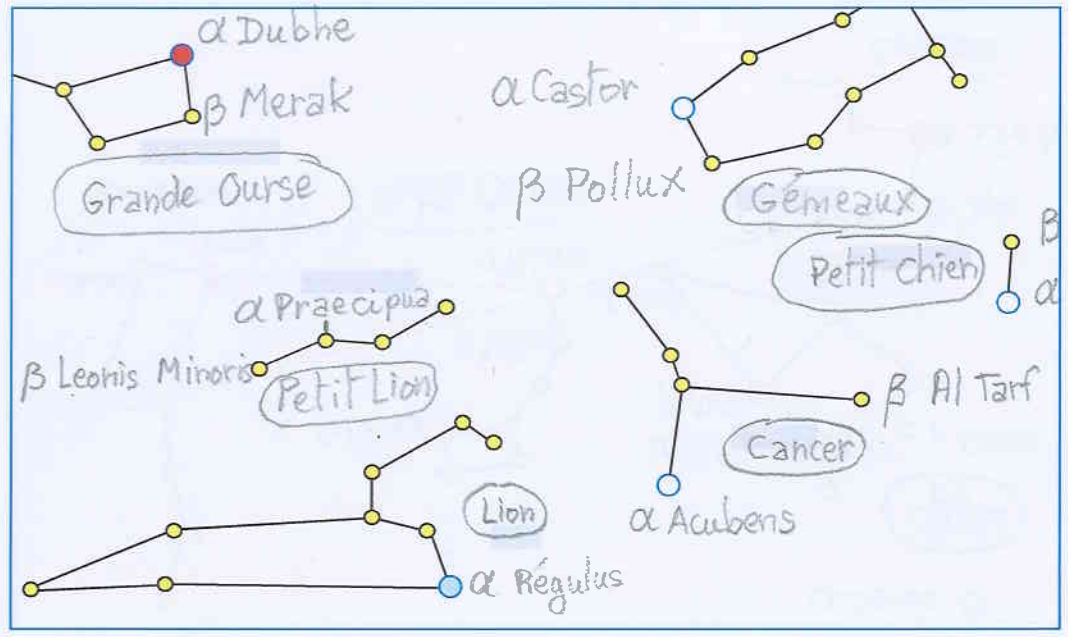 α Dubhe
β Merak
Grande Ourse
α Castor
β Pollux
Gémeaux
Petit Chien
β
α
α Praecipua
β Leonis Minoris
Petit Lion
β Al Tarf
Cancer
α Acubens
Lion
α Régulus